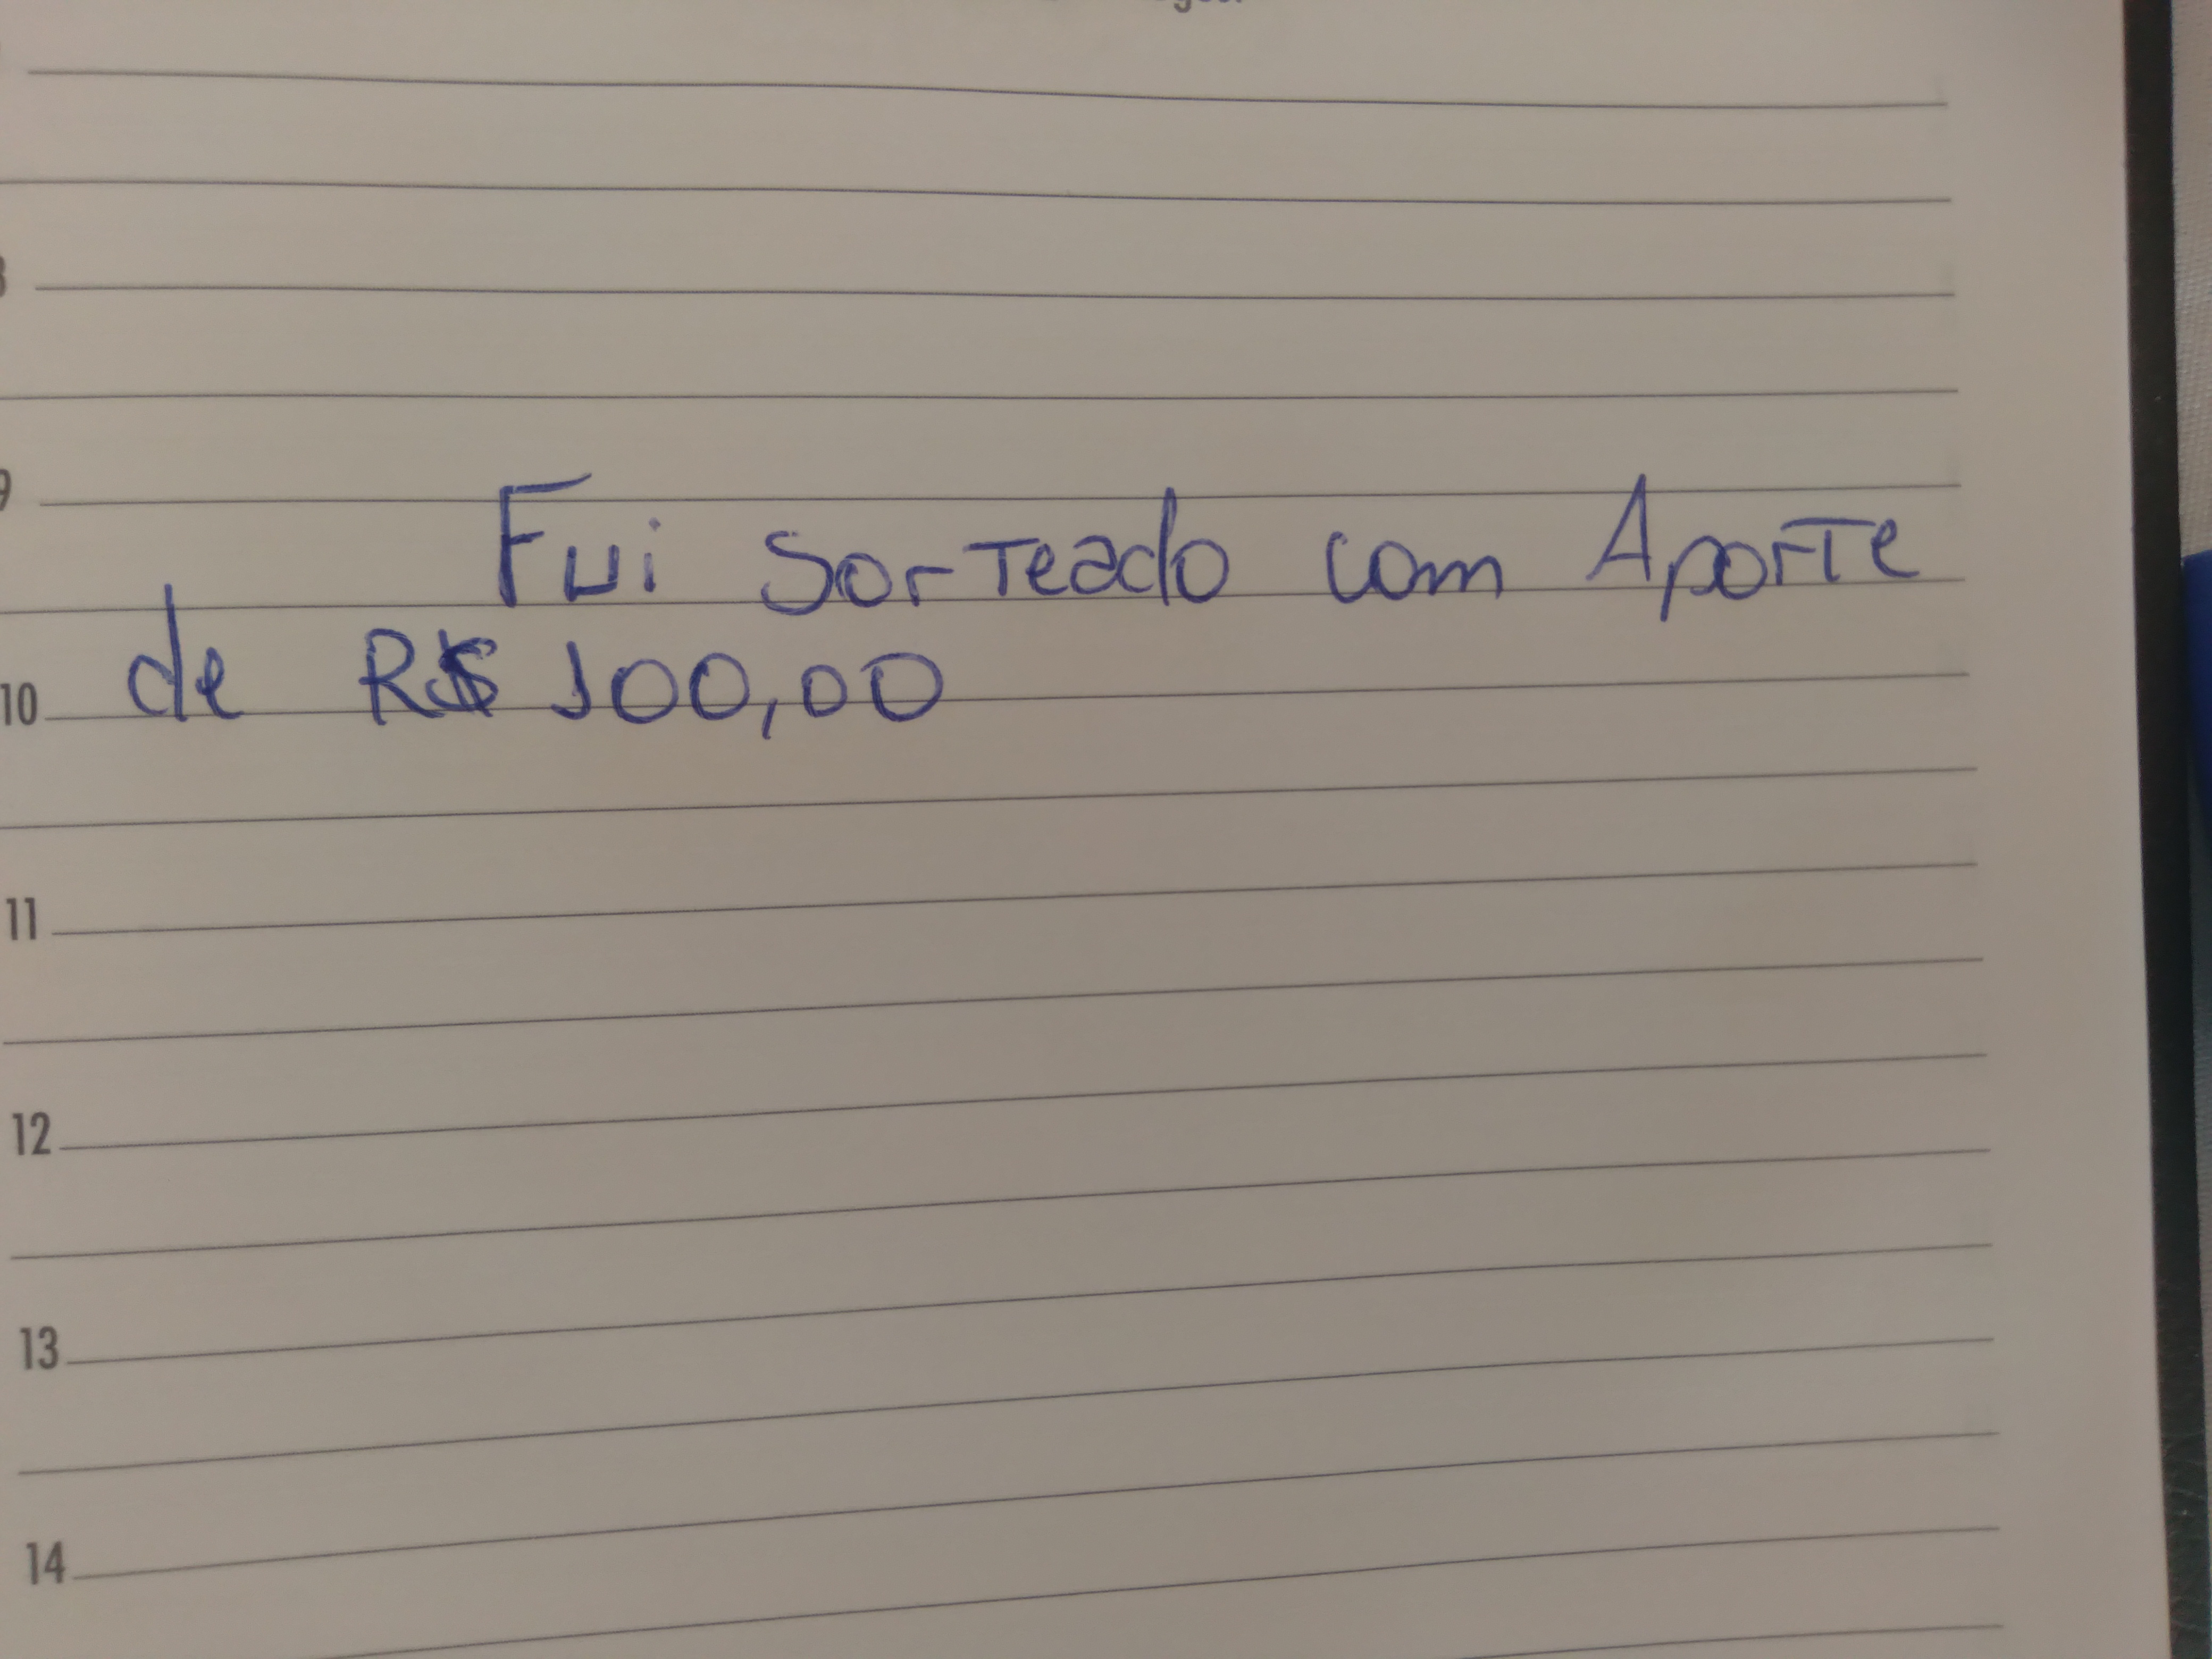 Fui Sorteado com Aporte
de R$ 100,00
10
11
12
13
14